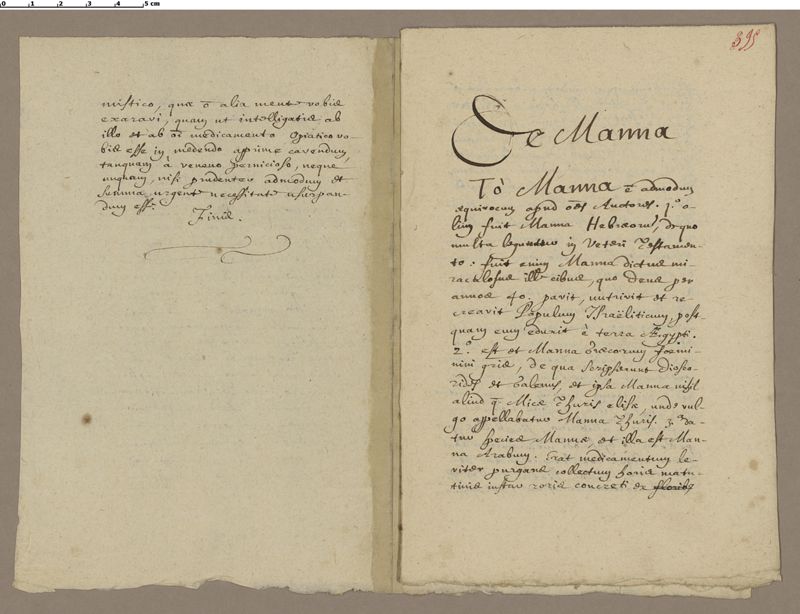 0 1 2 3 4 5 cm
mistico, quæ ō alia mente vobis
exaravi, quam ut intelligatis ab
illo et ab oi medicamento Opiatico vo-
bis esse in medendo apprime cavendum,
tanquam à veneno pernicioso, neque
unquam, nisi prudenter admodum et
summa urgente necessitate usurpan-
dum esse.
Finis.
395
De Manna
Tò Manna ē admodum
æquivocum apud oēs Auctores. 1.º o-
lim fuit Manna Hebræorū, de quo
multa leguntur in Veteri Testamen-
to. fuit enim Manna dictus mi-
raculosus ille cibus, quo Deus per
annos 40. pavit, nutrivit et re
creavit Populum Israëliticum, post-
quam eum eduxit è terra Ægypti.
2.º est et Manna Græcorum fœmi-
nini gñis, de qua scripserunt Diosco-
rides et Galenus, et ipsa Manna nihil
aliud q̄ Micæ Thuris elisæ, unde vul-
go appellabatur Manna Thuris. 3.º da-
tur species Mannæ, et illa est Man-
na Arabum. Erat medicamentum le-
viter purgans collectum horis matu-
tinis instar roris concreti ex floribs